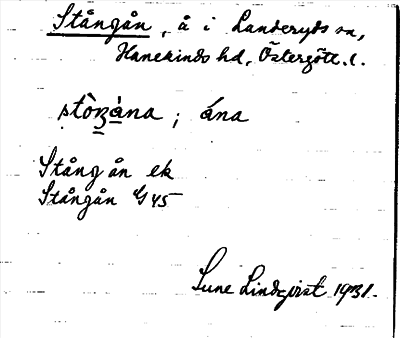 Stångån, å i Landeryds sn,
Hanekinds hd, Östergötl. l.
stòŋána; ána
Stång ån ek
Stångån G45
Sune Lindqvist 1931.